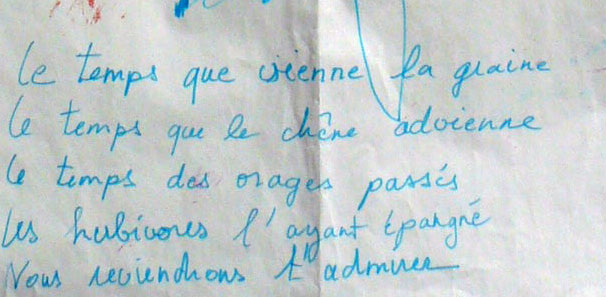 le temps que vienne la graine
le temps que le chêne advienne
le temps des orages passés
les hubivores l'ayant épargné
Nous reviendrons t'admirer